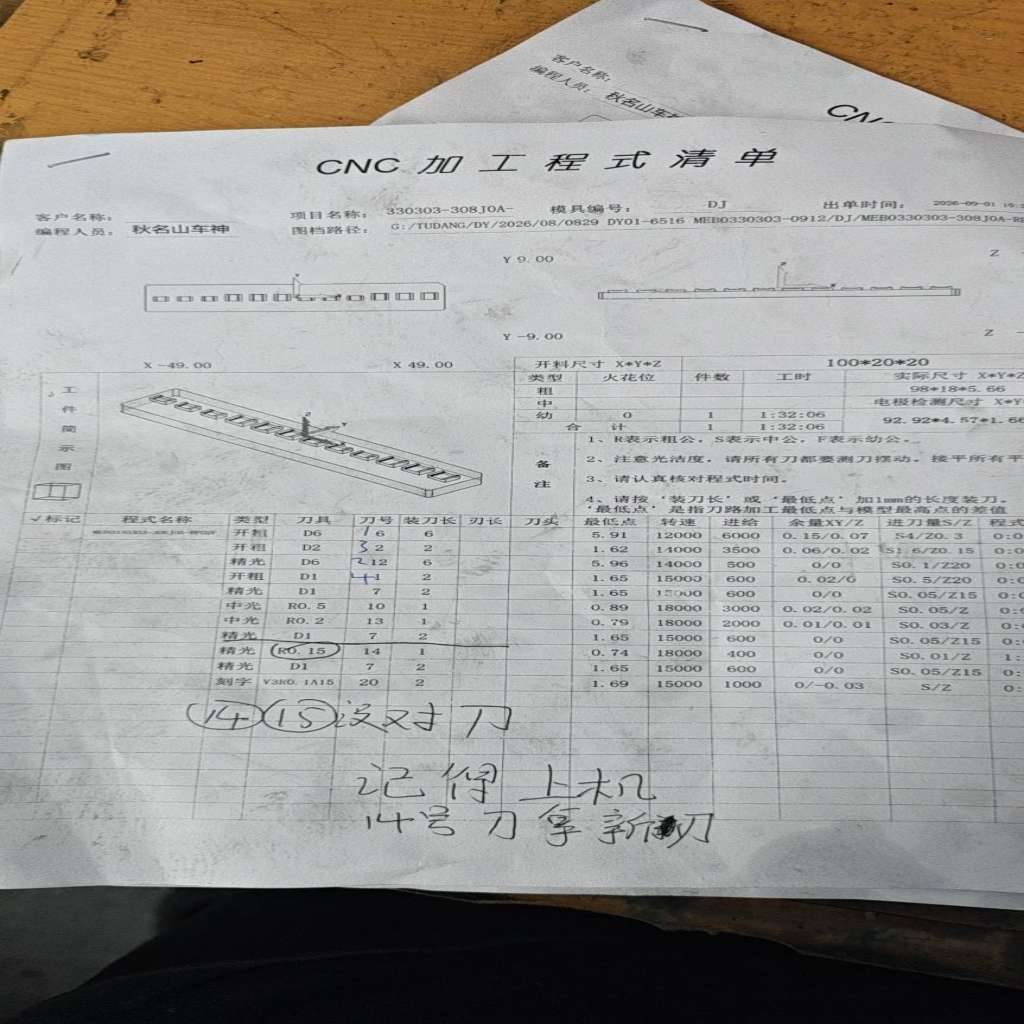 客户名称:
编程人员: 秋名山车神
CNC 加工程式清单
客户名称:
项目名称: 330303-308J0A-
模具编号: DJ
出单时间: 2026-09-01
编程人员: 秋名山车神
图档路径: G:/TUDANG/DY/2026/08/0829 DY01-6516 MEB0330303-0912/DJ/MEB0330303-308J0A-
Y 9.00
Z
Y -9.00
Z
X -49.00
X 49.00
工件简示图
开料尺寸 X*Y*Z 100*20*20
类型 火花位 件数 工时 实际尺寸 X*Y*Z
粗 98*18*5.66
中 电极检测尺寸 X*Y
幼 0 1 1:32:06 92.92*4.57*1.66
合 计 1 1:32:06
备注
1、R表示粗公，S表示中公，F表示幼公。
2、注意光洁度，请所有刀都要测刀摆动，接平所有平
3、请认真核对程式时间。
4、请按‘装刀长’或‘最低点’加1mm的长度装刀。
‘最低点’是指刀路加工最低点与模型最高点的差值
√标记 程式名称 类型 刀具 刀号 装刀长 刃长 刀头 最低点 转速 进给 余量XY/Z 进刀量S/Z 程式
开粗 D6 1 6 6 5.91 12000 6000 0.15/0.07 S4/Z0.3
开粗 D2 3 2 2 1.62 14000 3500 0.06/0.02 S1.6/Z0.15
精光 D6 2 12 6 5.96 14000 500 0/0 S0.1/Z20
开粗 D1 4 1 2 1.65 15000 600 0.02/0 S0.5/Z20
精光 D1 7 2 1.65 15000 600 0/0 S0.05/Z15
中光 R0.5 10 1 0.89 18000 3000 0.02/0.02 S0.05/Z
中光 R0.2 13 1 0.79 18000 2000 0.01/0.01 S0.03/Z
精光 D1 7 2 1.65 15000 600 0/0 S0.05/Z15
精光 R0.15 14 1 0.74 18000 400 0/0 S0.01/Z 1:
精光 D1 7 2 1.65 15000 600 0/0 S0.05/Z15
刻字 V3R0.1A15 20 2 1.69 15000 1000 0/-0.03 S/Z
14 15 没对刀
记得上机
14号刀拿新刀